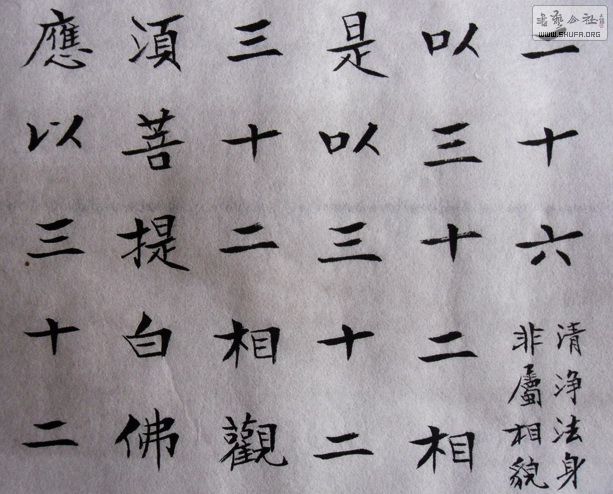 二十六
清浄法身
非屬相貌
以三十二相
是以三十二
三十二相觀
湏菩提白佛
應以三十二
WWW.SHUFA.ORG